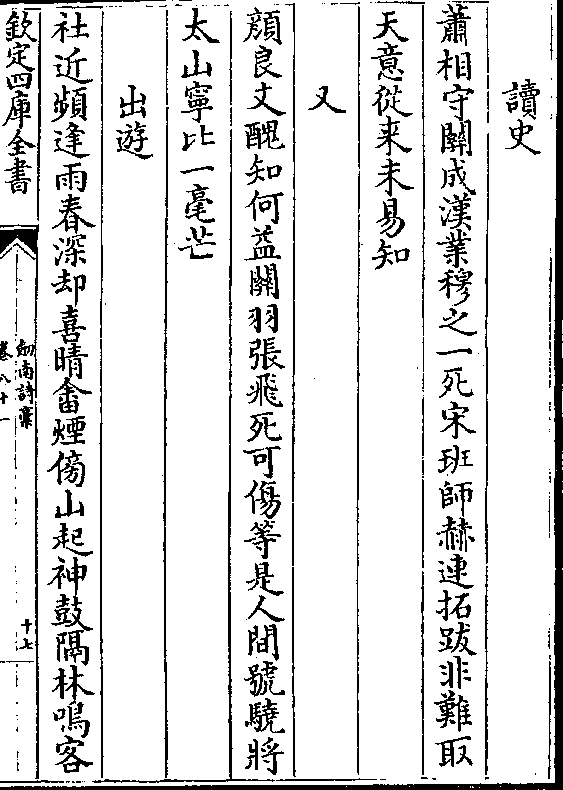 讀史
蕭相守關成漢業穆之一死宋班師赫連拓跋非難取
天意從来未易知
又
顔良文醜知何益關羽張飛死可傷等是人間號驍將
太山寧比一毫芒
出遊
社近頻逢雨春深却喜晴畬煙傍山起神鼓隔林鳴客
欽定四庫全書
劒南詩藁
卷八十一
十七